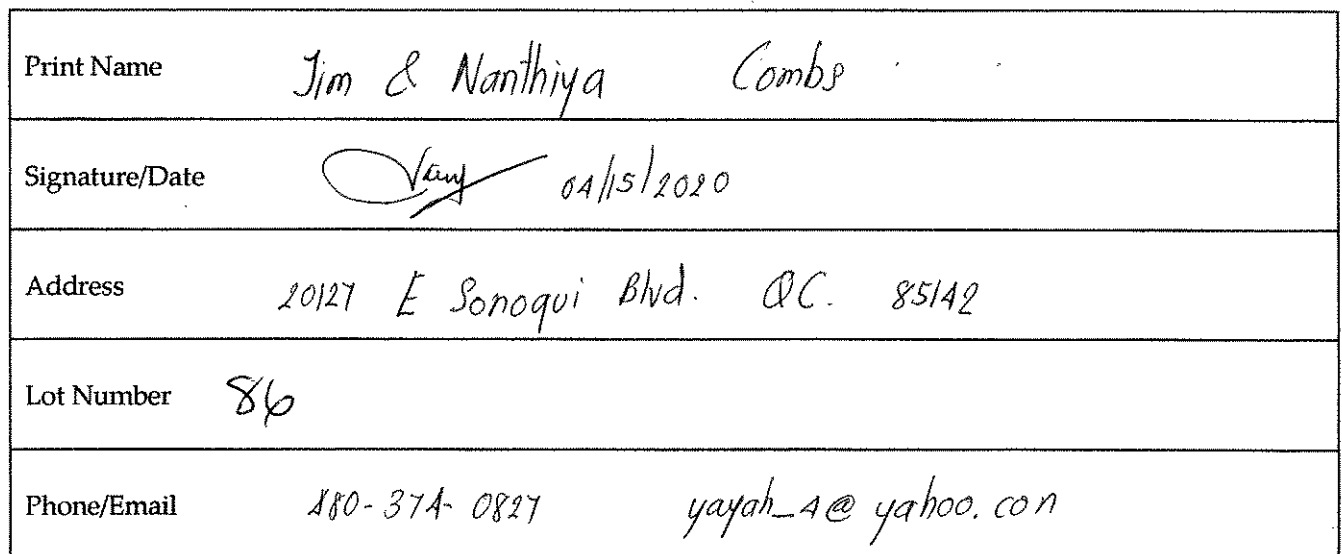 Print Name Jim & Nanthiya Combs
Signature/Date 04/15/2020
Address 20127 E Sonoqui Blvd. QC. 85142
Lot Number 86
Phone/Email 480-374-0827 yayah_4@ yahoo.con